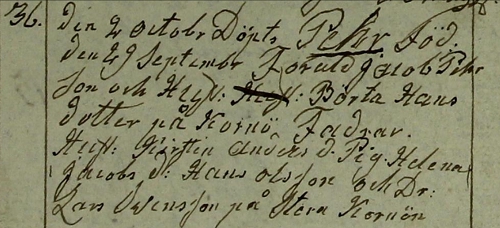 36. den 2 octobr Döpts Pehr Föd.
den 29 Septembr Föräld Jacob Pehr
son och Hust: Hust: Börta Hans
dotter på Kornö Fadrar.
Hust: Kirstin Anders d. Pig. Helena
Jacobs d: Hans olsson och Dr:
Lars Swensson på Stora Kornön